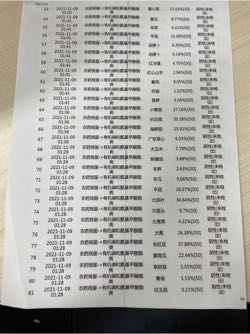 2021-11-09 01:41 农药残留->有机磷和氨基甲酸酯类 15.63%(50) 阴性(未检出)
54 2021-11-09 01:41 农药残留->有机磷和氨基甲酸酯类 9.77%(50) 阴性(未检出)
55 2021-11-09 01:41 农药残留->有机磷和氨基甲酸酯类 阴性(未检出)
56 2021-11-09 01:41 农药残留->有机磷和氨基甲酸酯类 平菇 阴性(未检出)
57 2021-11-09 01:41 农药残留->有机磷和氨基甲酸酯类 胡萝卜 阴性(未检出)
2021-11-09 01:41 农药残留->有机磷和氨基甲酸酯类 阴性(未检出)
2021-11-09 01:41 农药残留->有机磷和氨基甲酸酯类 红洋葱 4.75%(50) 阴性(未检出)
2021-11-09 01:41 农药残留->有机磷和氨基甲酸酯类 阴性(未检出)
2021-11-09 农药残留->有机磷和氨基甲酸酯类 阴性(未检出)
2021-11-09 农药残留->有机磷和氨基甲酸酯类 1.52%(50) 阴性(未检出)
2021-11-09 农药残留->有机磷和氨基甲酸酯类 3.40%(50) 阴性(未检出)
64 2021-11-09 01:36 农药残留->有机磷和氨基甲酸酯类 小青菜 37.16%(50) 阴性(未检出)
65 2021-11-09 01:36 农药残留->有机磷和氨基甲酸酯类 杭白菜 30.16%(50) 阴性(未检出)
66 2021-11-09 01:36 农药残留->有机磷和氨基甲酸酯类 25.92%(50) 阴性(未检出)
67 2021-11-09 农药残留->有机磷和氨基甲酸酯类 广东菜心 6.03%(50) 阴性(未检出)
68 2021-11-09 01:28 农药残留->有机磷和氨基甲酸酯类 大玉米 7.79%(50) 阴性(未检出)
69 2021-11-09 01:28 农药残留->有机磷和氨基甲酸酯类 3.88%(50) 阴性(未检出)
70 2021-11-09 01:28 农药残留->有机磷和氨基甲酸酯类 冬笋 2.63%(50) 阴性(未检出)
71 2021-11-09 01:28 农药残留->有机磷和氨基甲酸酯类 冬瓜 9.60%(50) 阴性(未检出)
72 2021-11-09 01:28 农药残留->有机磷和氨基甲酸酯类 平菇 19.57%(50) 阴性(未检出)
73 2021-11-09 01:28 农药残留->有机磷和氨基甲酸酯类 大蒜叶 34.64%(50) 阴性(未检出)
74 2021-11-09 01:28 农药残留->有机磷和氨基甲酸酯类 大蒜头 9.7%(50) 阴性(未检出)
75 2021-11-09 01:28 农药残留->有机磷和氨基甲酸酯类 大青菜 4.32%(50) 阴性(未检出)
76 2021-11-09 01:28 农药残留->有机磷和氨基甲酸酯类 大葱 26.38%(50) 阴性(未检出)
77 2021-11-09 01:28 农药残留->有机磷和氨基甲酸酯类 长豇豆 37.88%(50) 阴性(未检出)
78 2021-11-09 01:28 农药残留->有机磷和氨基甲酸酯类 黄南瓜 22.44%(50) 阴性(未检出)
79 2021-11-09 01:28 农药残留->有机磷和氨基甲酸酯类 茶树菇 3.55%(50) 阴性(未检出)
80 2021-11-09 01:28 农药残留->有机磷和氨基甲酸酯类 5.53%(50) 阴性(未检出)
81 2021-11-09 01:28 农药残留->有机磷和氨基甲酸酯类 白玉菇 0.21%(50) 阴性(未检出)